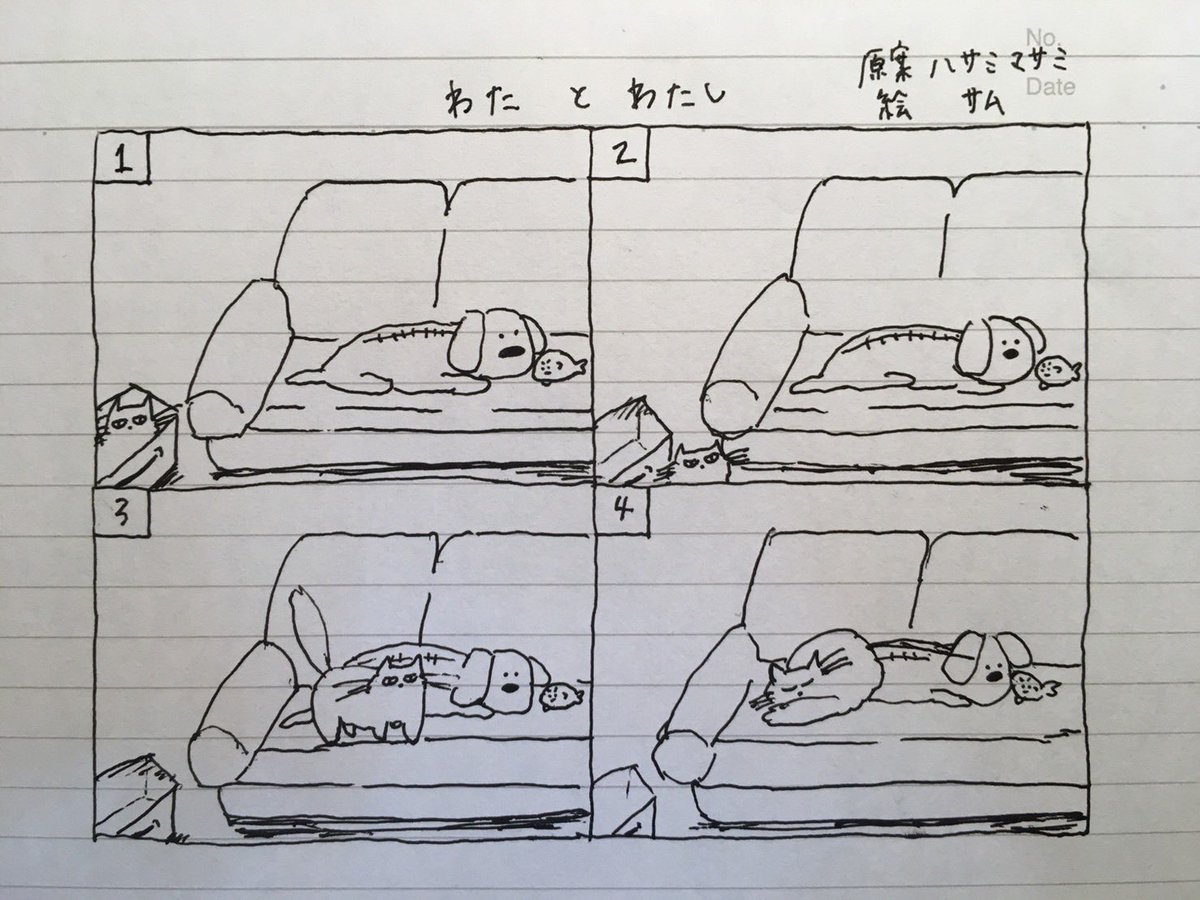 わた と わたし
原案 ハサミマサミ
絵 サム
No.
Date
1
2
3
4